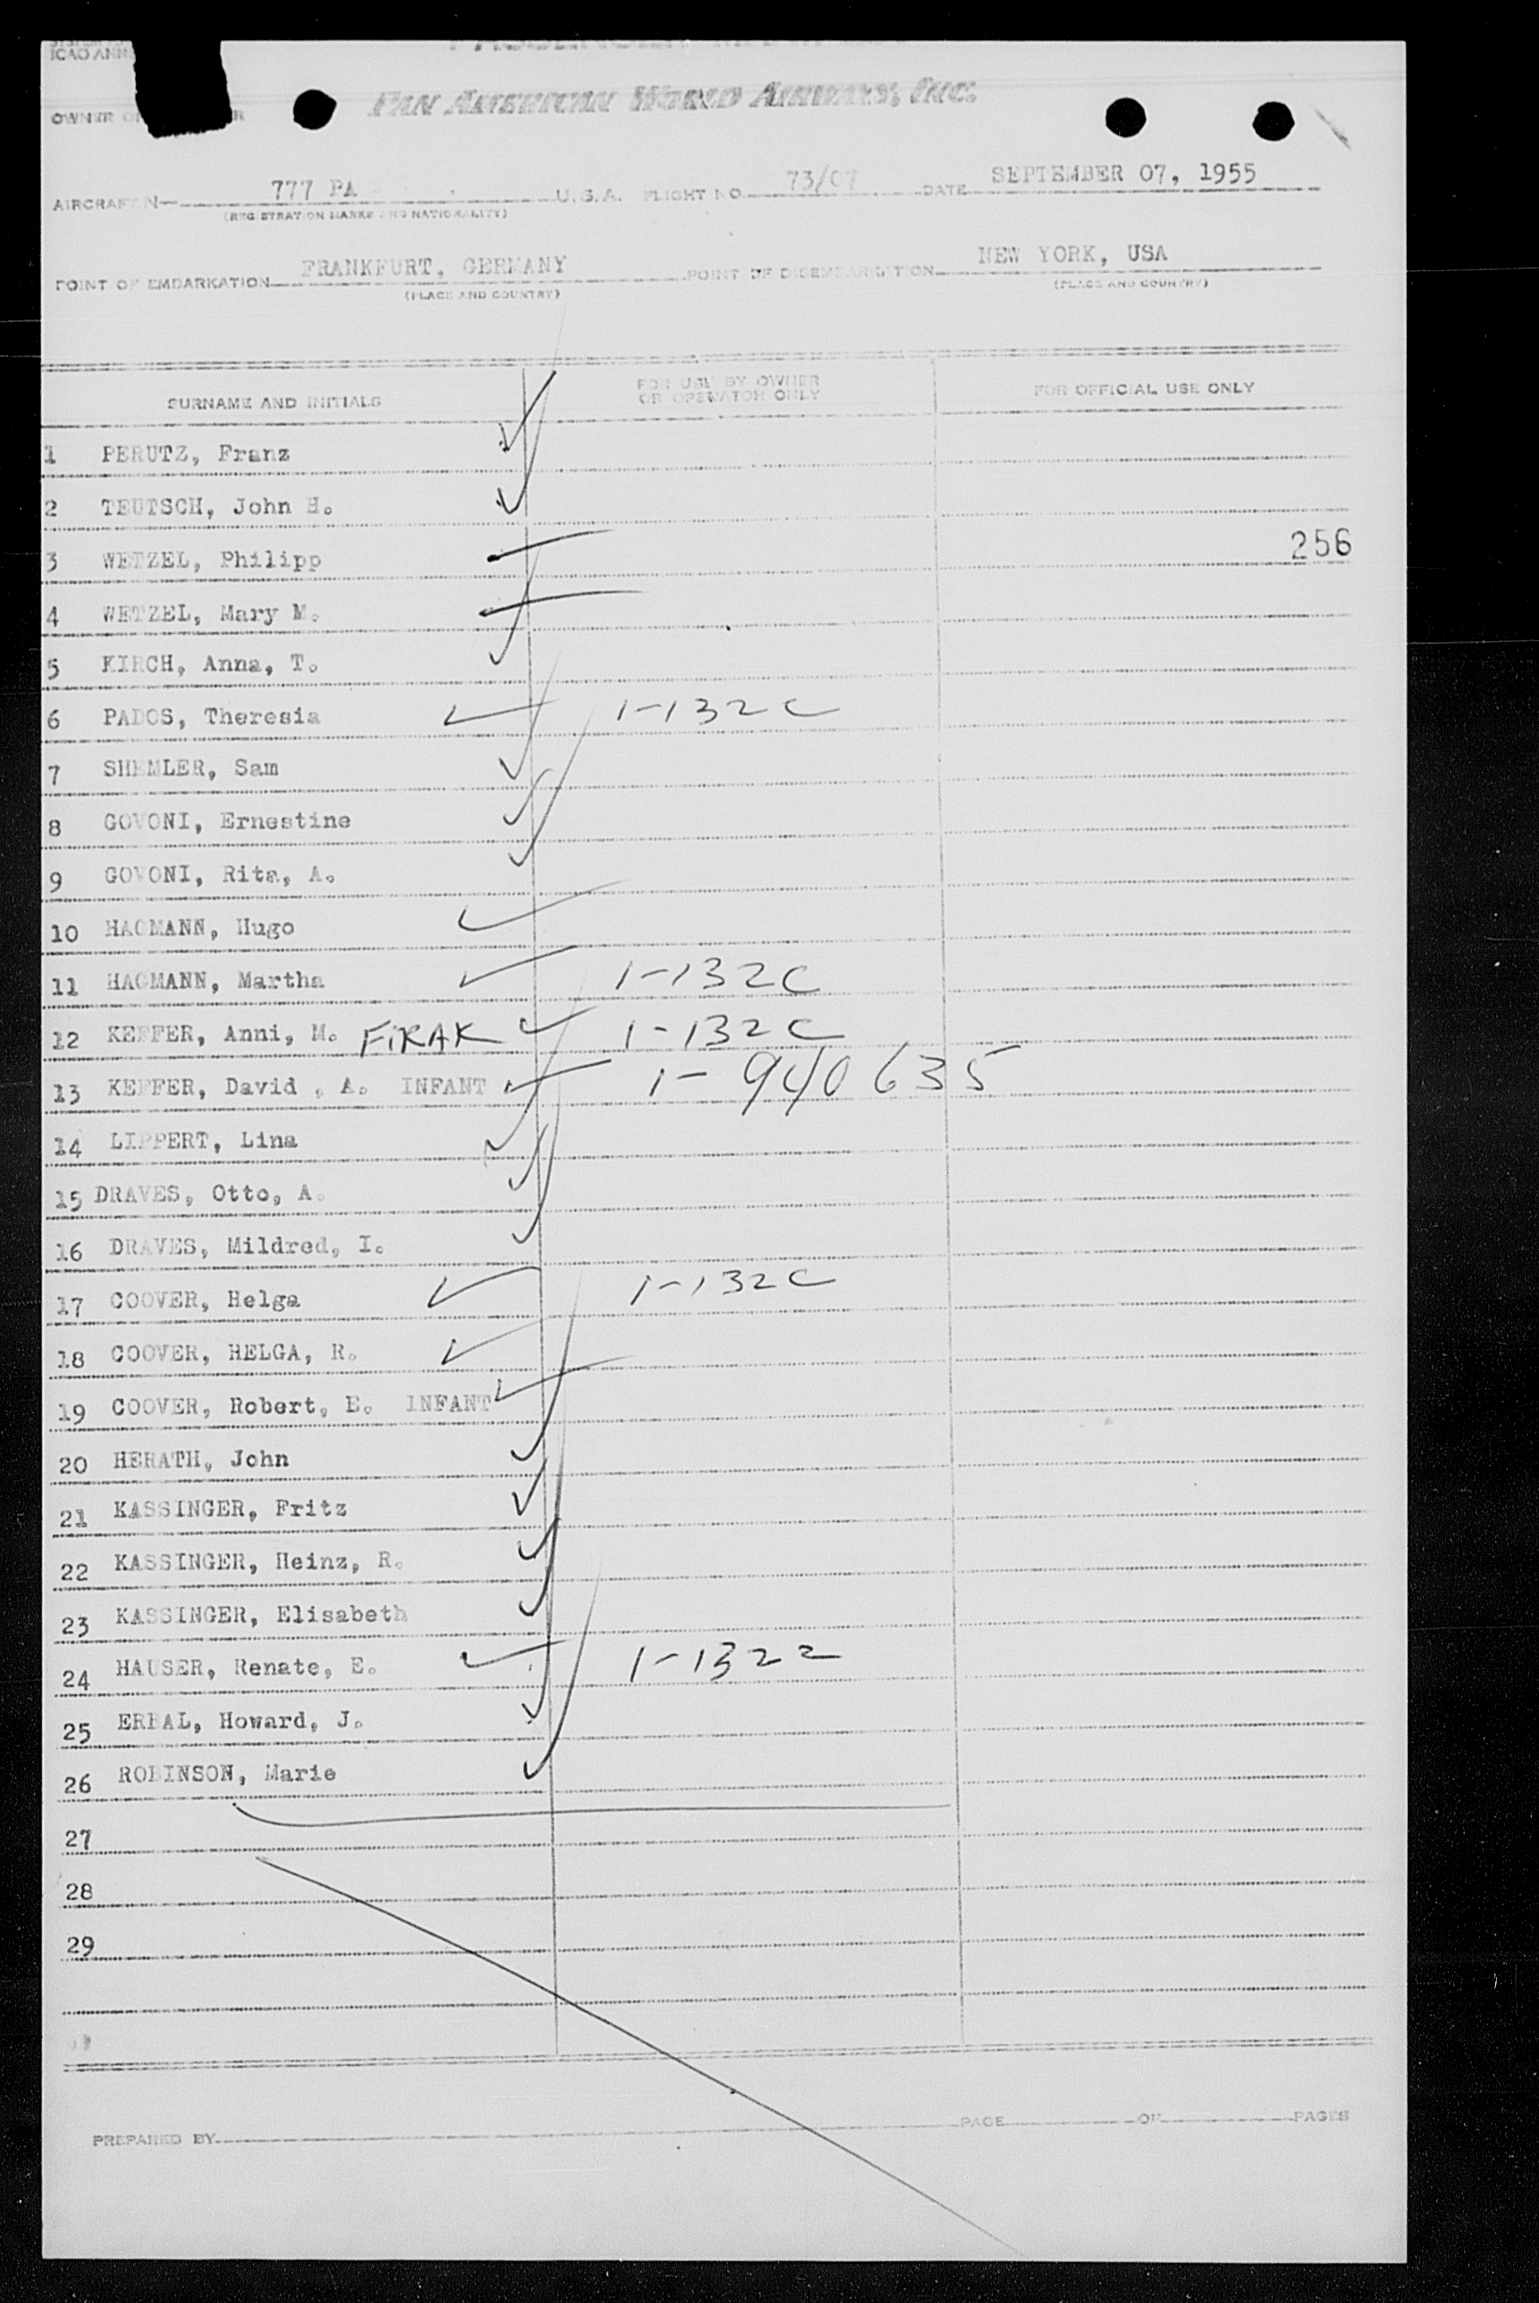 ICAO ANN
PAN AMERICAN WORLD AIRWAYS, INC.
OWNER O R
AIRCRAFT N— 777 PA U.S.A. FLIGHT NO. 73/07 DATE SEPTEMBER 07, 1955
(REGISTRATION MARKS AND NATIONALITY)
POINT OF EMBARKATION FRANKFURT, GERMANY POINT OF DISEMBARKATION NEW YORK, USA
(PLACE AND COUNTRY) (PLACE AND COUNTRY)
SURNAME AND INITIALS FOR USE BY OWNER OR OPERATOR ONLY FOR OFFICIAL USE ONLY
1 PERUTZ, Franz
2 TEUTSCH, John H.
3 WETZEL, Philipp 256
4 WETZEL, Mary M.
5 KIRCH, Anna, T.
6 PADOS, Theresia 1-132C
7 SHEMLER, Sam
8 GOVONI, Ernestine
9 GOVONI, Rita, A.
10 HAGMANN, Hugo
11 HAGMANN, Martha 1-132C
12 KEFFER, Anni, M. FIRAK 1-132C
13 KEFFER, David , A. INFANT 1-940635
14 LIPPERT, Lina
15 DRAVES, Otto, A.
16 DRAVES, Mildred, I.
17 COOVER, Helga 1-132C
18 COOVER, HELGA, R.
19 COOVER, Robert, E. INFANT
20 HERATH, John
21 KASSINGER, Fritz
22 KASSINGER, Heinz, R.
23 KASSINGER, Elisabeth
24 HAUSER, Renate, E. 1-1322
25 ERBAL, Howard, J.
26 ROBINSON, Marie
27
28
29
PREPARED BY PAGE OF PAGES